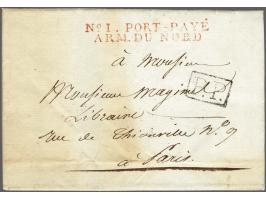 No 1. PORT-PAYÉ
ARM. DU NORD
à Monsieur
Monsieur Magimel
P.P.
Libraire
rue de Thionville No. 9
à Paris.